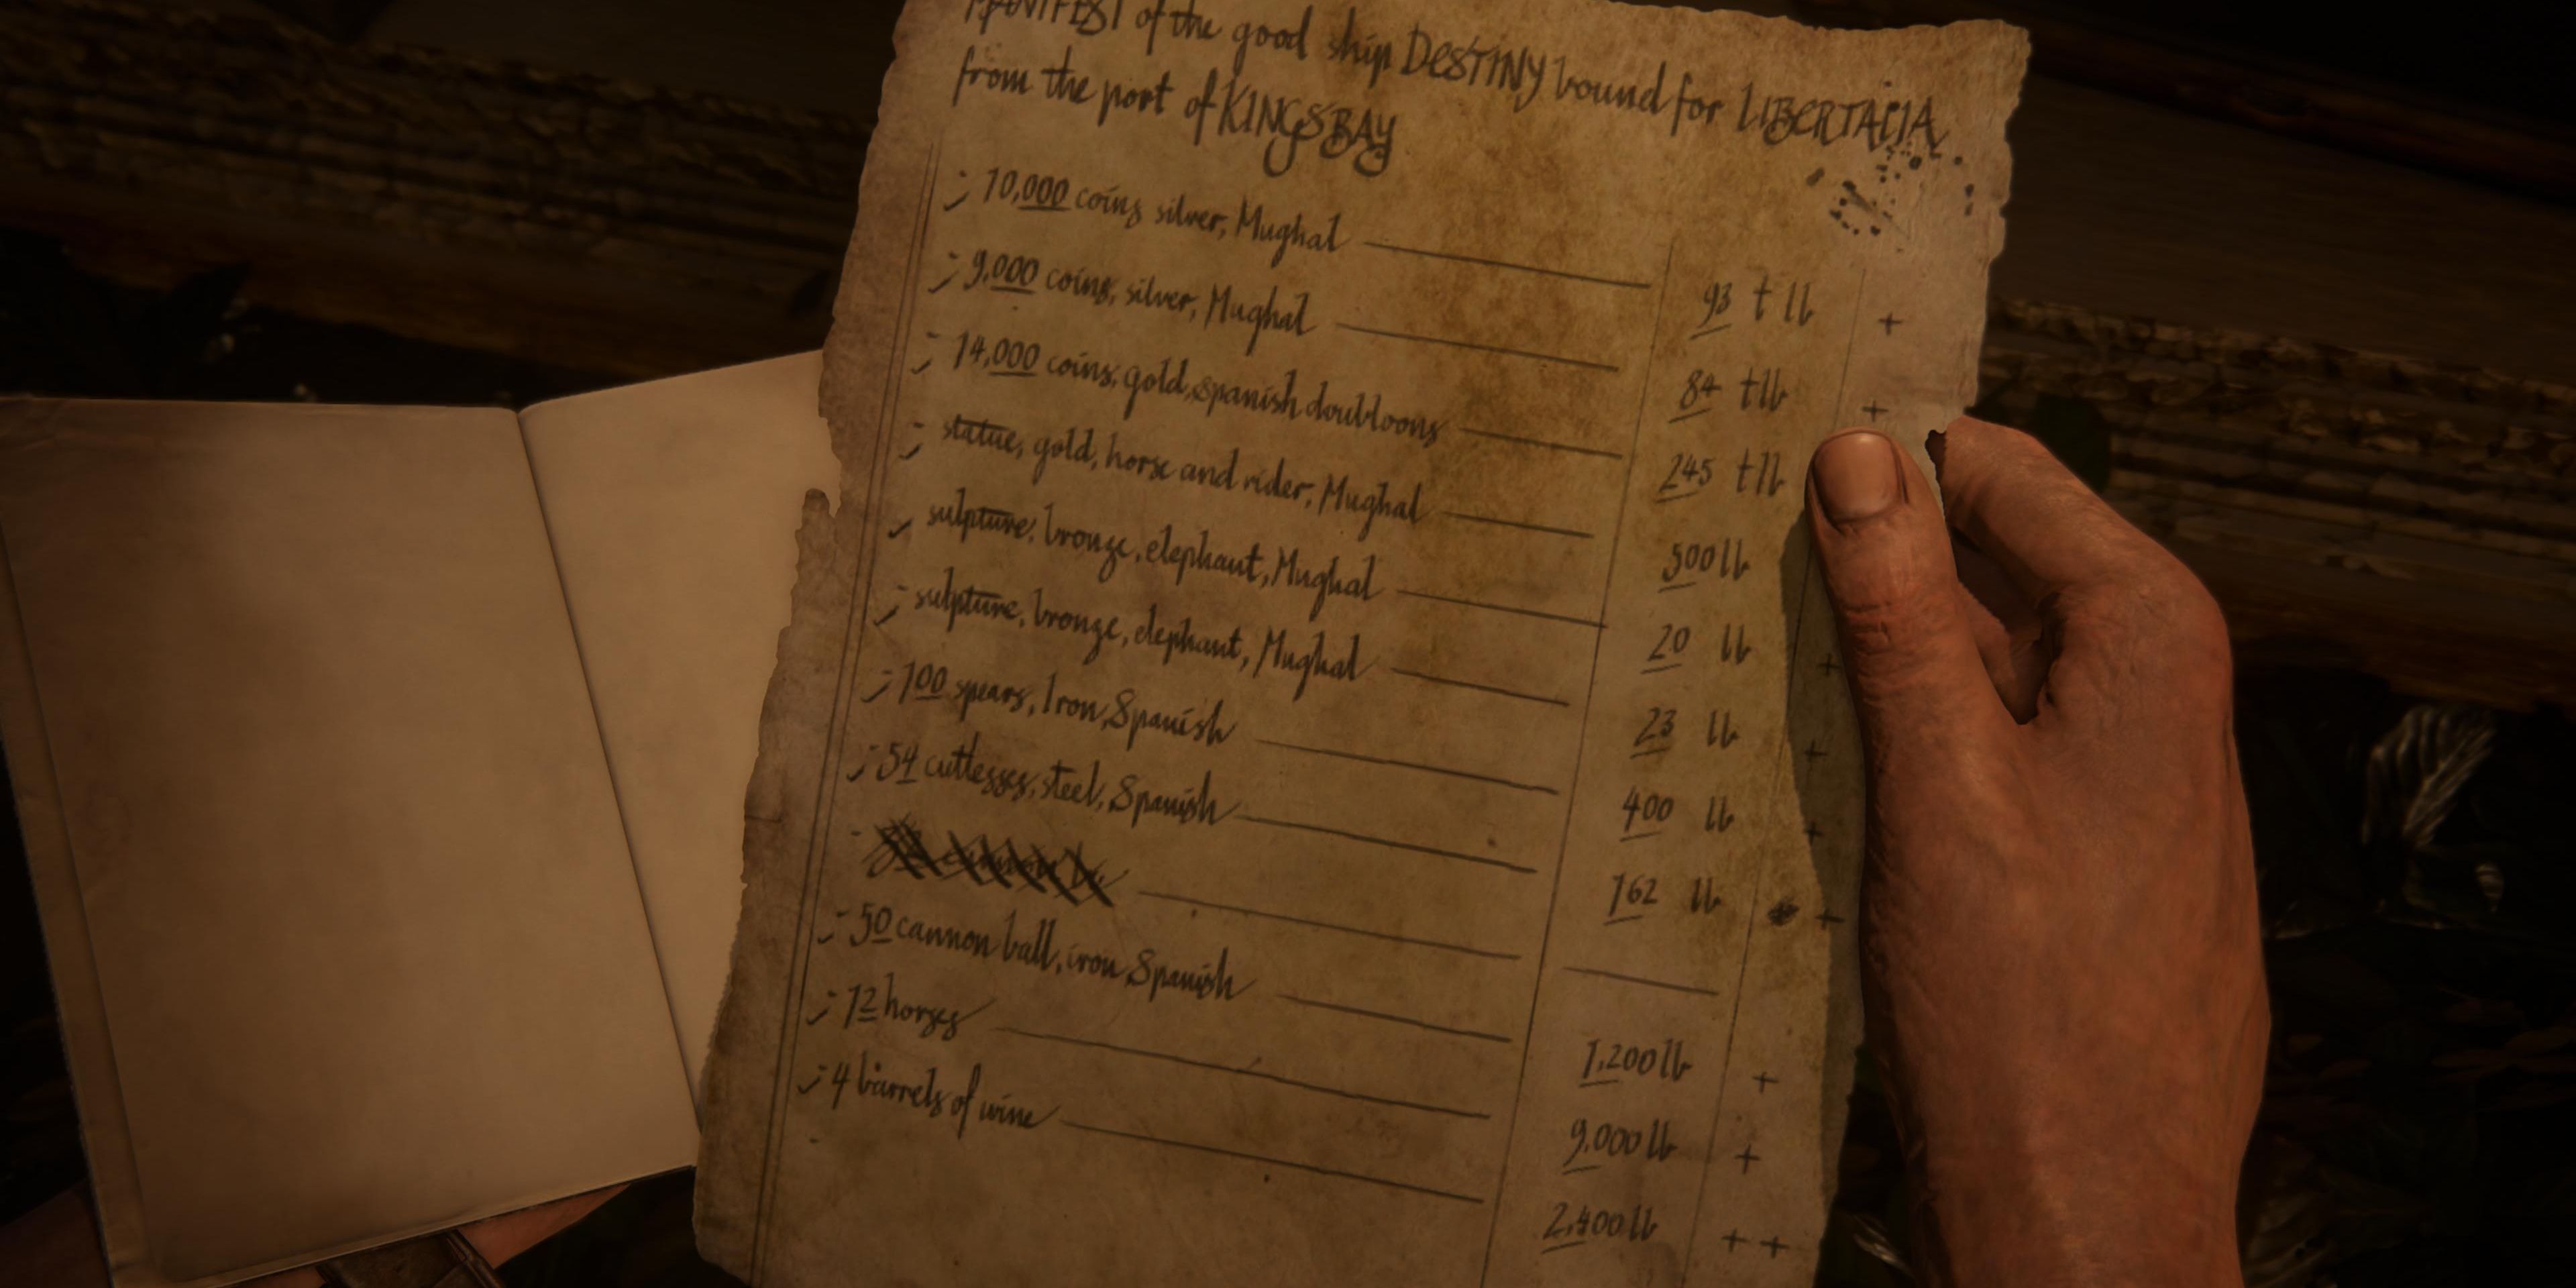 MANIFEST of the good ship DESTINY bound for LIBERTALIA
from the port of KINGS BAY
- 10,000 coins silver, Mughal 93 t lb +
- 9,000 coins, silver, Mughal 84 t lb +
- 14,000 coins, gold, Spanish doubloons 245 t lb
- statue, gold, horse and rider, Mughal 500 lb
sulpture, bronze, elephant, Mughal 20 lb +
- sulpture, bronze, elephant, Mughal 23 lb +
- 100 spears, Iron, Spanish 400 lb +
- 54 cutlesses, steel, Spanish 162 lb +
-
- 50 cannon ball, iron, Spanish 1,200 lb +
- 12 horses 9,000 lb +
- 4 barrels of wine 2,400 lb + +